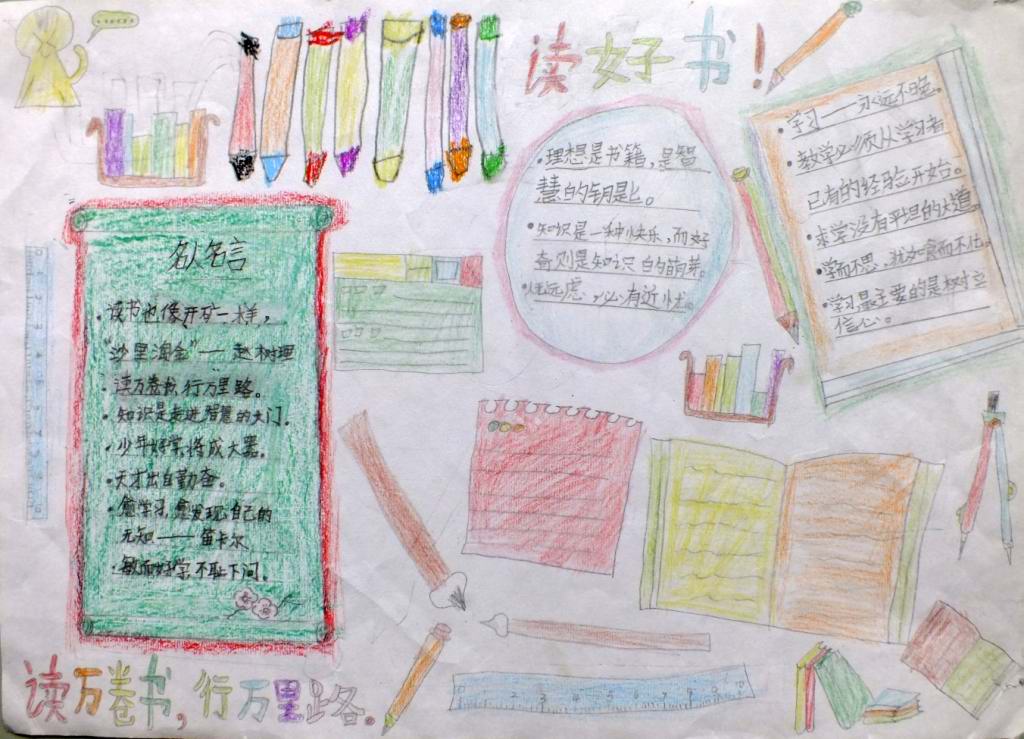 读好书!
名人名言
·读书也像开矿一样，
"沙里淘金"——赵树理
·读万卷书,行万里路。
·知识是走进智慧的大门。
·少年好学,将成大器。
·天才出自勤奋。
·愈学习,愈发现自己的
无知——笛卡尔
·敏而好学,不耻下问。
·理想是书籍,是智
慧的钥匙。
·知识是一种快乐,而好
奇则是知识的萌芽。
远虑,必有近忧。
·学习——永远不晚。
·教学必须从学习者
已有的经验开始。
·求学没有平坦的大道。
·学而不思,犹如食而不化。
·学习最主要的是树立
信心。
0 1 2 3 4 5 6 7 8 9 10
读万卷书,行万里路。